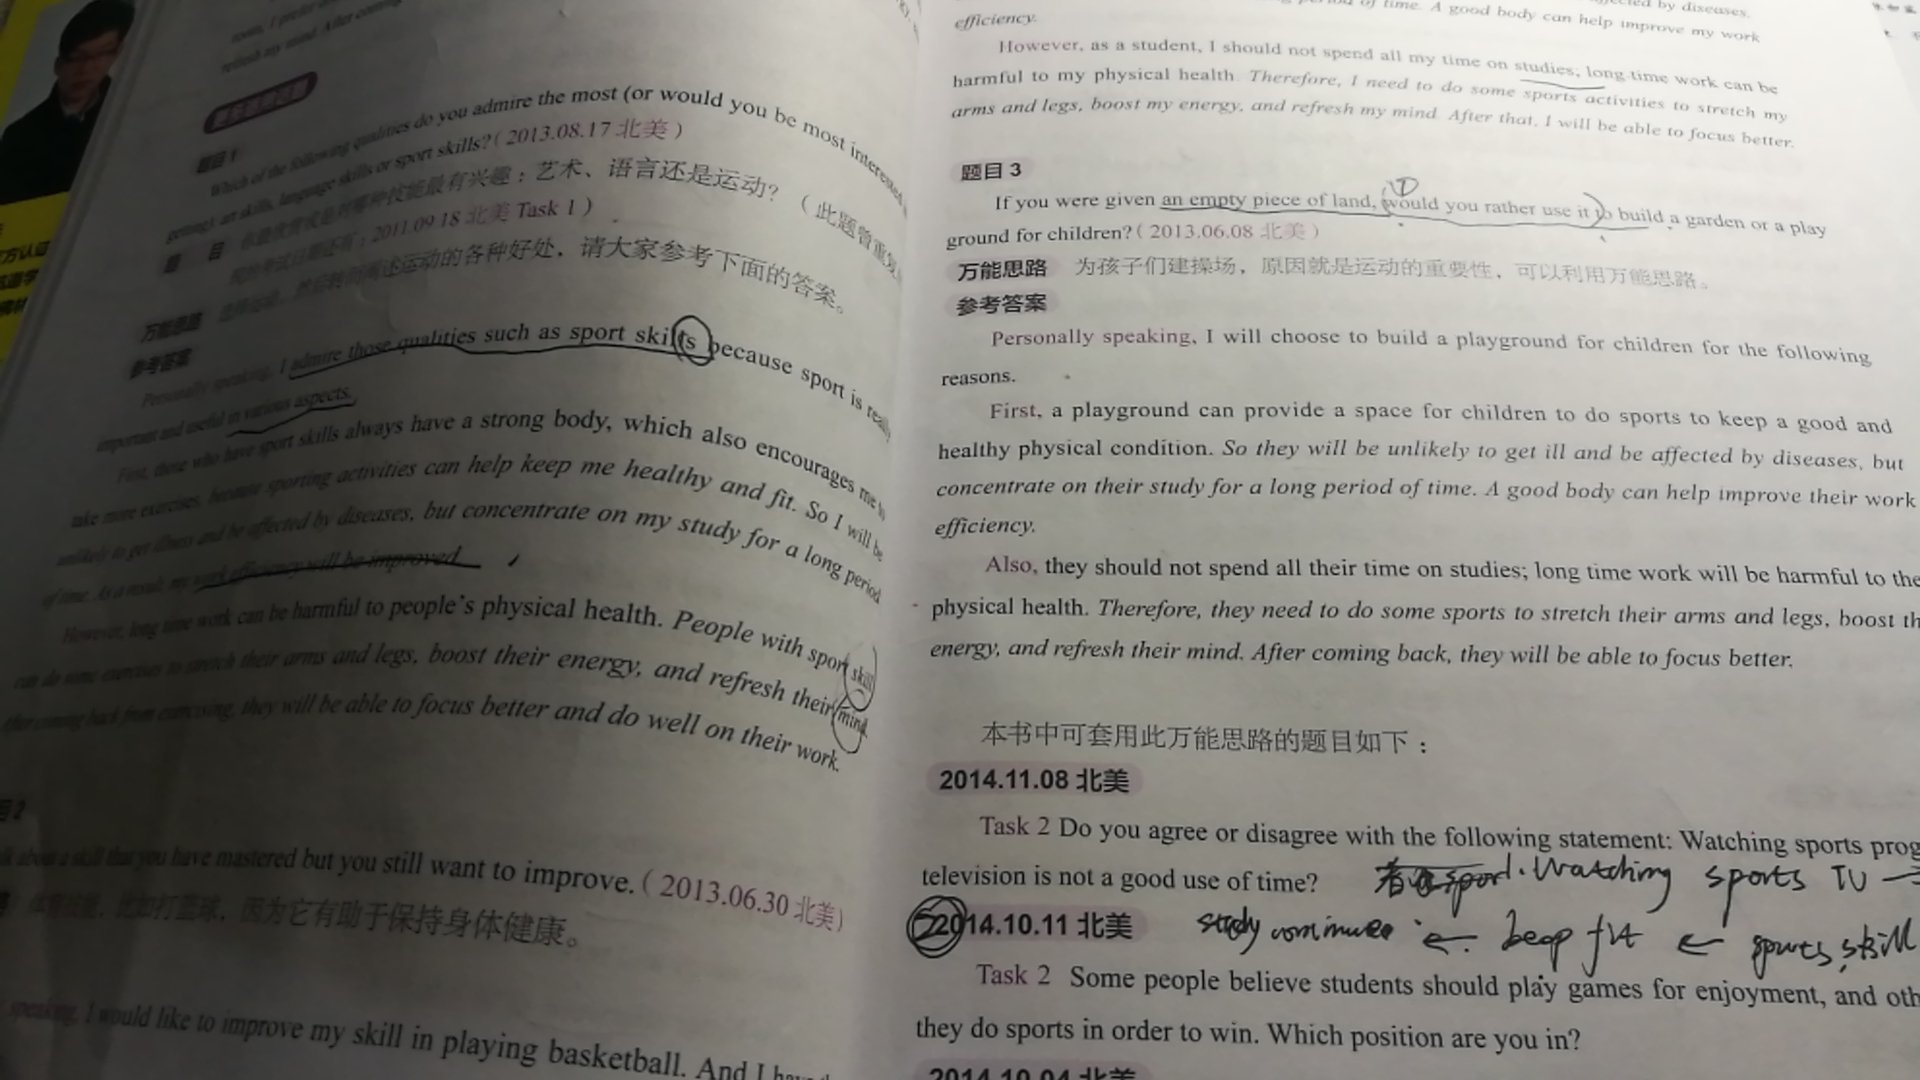 room, I prefer
refresh my mind. After coming
题目 1
Which of the following qualities do you admire the most (or would you be most interested
getting), art skills, language skills or sport skills? ( 2013.08.17 北美 )
题目 你最欣赏或是对哪种技能最有兴趣：艺术、语言还是运动？（此题曾重复
现的考试日期还有：2011.09.18 北美 Task 1 ）
万能思路 选择运动，然后转而阐述运动的各种好处，请大家参考下面的答案。
参考答案
Personally speaking, I admire those qualities such as sport skills because sport is really
important and useful in various aspects.
First, those who have sport skills always have a strong body, which also encourages me to
take more exercises, because sporting activities can help keep me healthy and fit. So I will be
unlikely to get illness and be affected by diseases, but concentrate on my study for a long period
of time. As a result, my work efficiency will be improved.
However, long time work can be harmful to people's physical health. People with sport skill
can do some exercises to stretch their arms and legs, boost their energy, and refresh their mind.
After coming back from exercising, they will be able to focus better and do well on their work.
目 2
about a skill that you have mastered but you still want to improve. ( 2013.06.30 北美 )
体育技能，比如打篮球，因为它有助于保持身体健康。
speaking, I would like to improve my skill in playing basketball. And I have
方认证
period of time. A good body can help improve my work
efficiency.
However, as a student, I should not spend all my time on studies; long time work can be
harmful to my physical health. Therefore, I need to do some sports activities to stretch my
arms and legs, boost my energy, and refresh my mind. After that, I will be able to focus better.
题目 3
①
If you were given an empty piece of land, would you rather use it to build a garden or a play
ground for children? ( 2013.06.08 北美 )
万能思路 为孩子们建操场，原因就是运动的重要性，可以利用万能思路。
参考答案
Personally speaking, I will choose to build a playground for children for the following
reasons.
First, a playground can provide a space for children to do sports to keep a good and
healthy physical condition. So they will be unlikely to get ill and be affected by diseases, but
concentrate on their study for a long period of time. A good body can help improve their work
efficiency.
Also, they should not spend all their time on studies; long time work will be harmful to the
physical health. Therefore, they need to do some sports to stretch their arms and legs, boost th
energy, and refresh their mind. After coming back, they will be able to focus better.
本书中可套用此万能思路的题目如下：
2014.11.08 北美
Task 2 Do you agree or disagree with the following statement: Watching sports prog
television is not a good use of time? Watching sports TV →
2014.10.11 北美 study ← keep fit ← sports skill
Task 2 Some people believe students should play games for enjoyment, and oth
they do sports in order to win. Which position are you in?
2014.10.04 北美